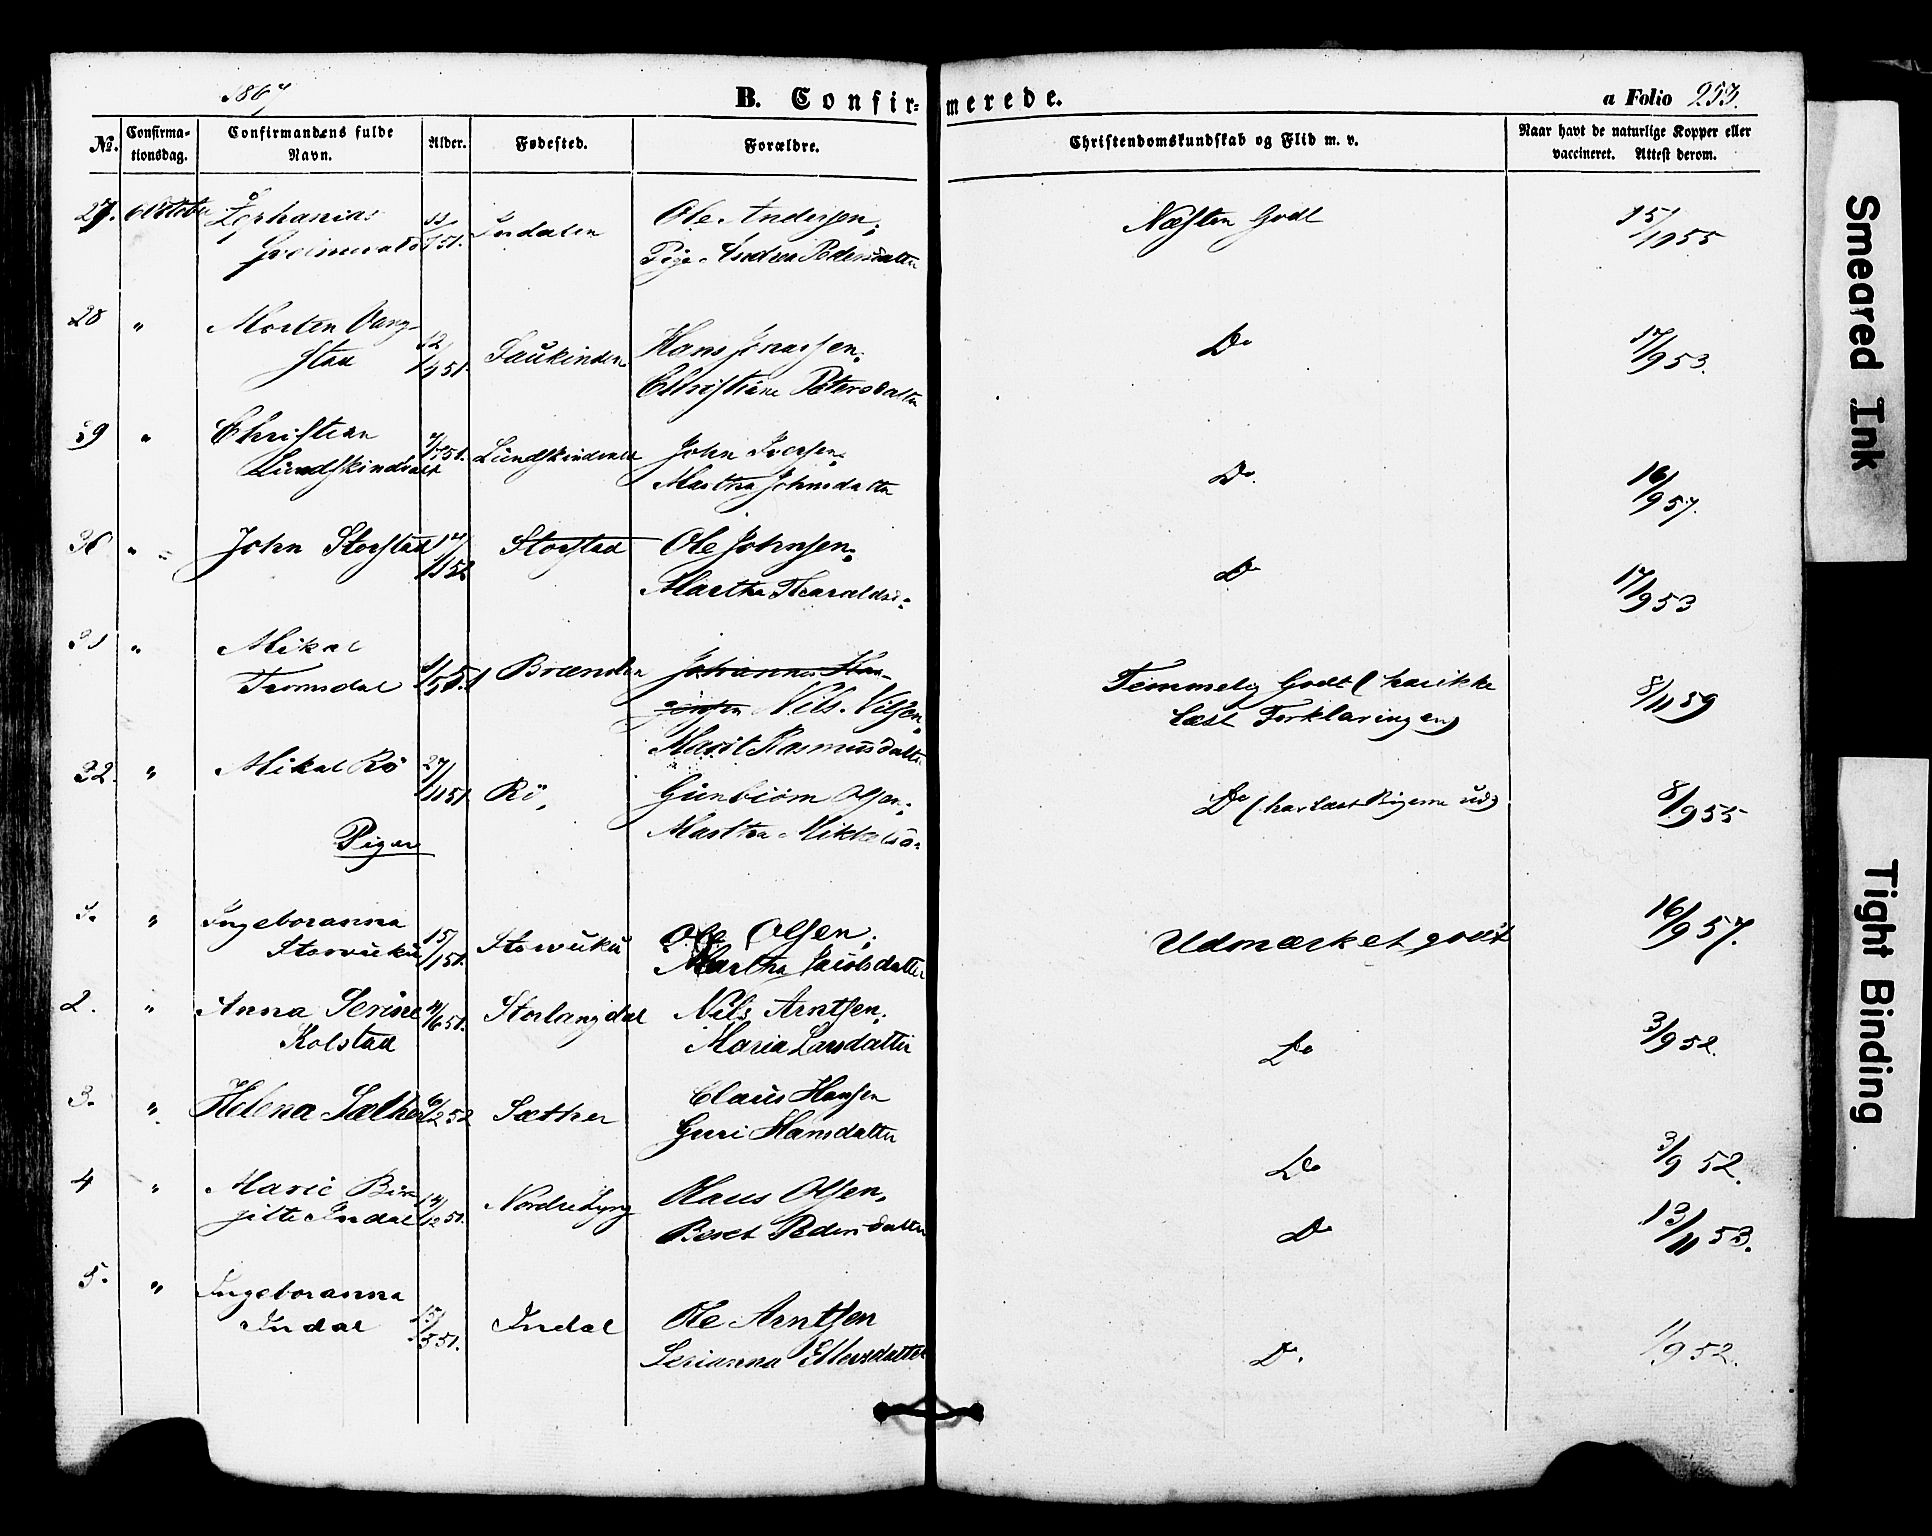 1867 B. Confirmerede. a Folio 253.
No. Confirmationsdag. Confirmandens fulde Navn. Alder. Fødested. Forældre. Christendomskundskab og Flid m. v. Naar havt de naturlige Kopper eller vaccineret. Attest derom.
27. 6 October Zephanias Indalen Ole Andersen, Næsten Godt 15/10 55
Pige Andrea Pedersdatter
28 " Morten Vangstad 12/9 51. Hans Jonassen. Do 17/9 53.
Christiane Petersdatter
29 " Christian 7/7 51. Lundskindvalt John Iversen. Do. 16/9 57.
Lundskindvalt Martha Johnsdatter
30 " John Storstad 17/1 52 Storstad Ole Johnsen. Do 17/9 53
Martha Haraldsd.
31 " Mikal Brænden Johannes Han-
Tromsdal Nils. Nilsen, Temmelig Godt (har ikke 8/11 59
Marit Rasmusdatter læst Forklaringen)
32. " Mikal Rö 27/11 51. Rö, Gunbiörn Olsen. Do (har læst Bogerne ud) 8/9 55
Martha Mikkelsd.
Piger
1. " Ingeboranna 15/1 51. Storvuku Ole Olsen. Udmærket godt 16/9 57.
Storvuku Martha Jacobsdatter
2. " Anna Serine 4/6 51. Storlangdal Nils Arntsen. Do 3/9 52.
Kolstad Maria Larsdatter
3. " Helena Sæther 6/2 52 Sæther Claus Hansen Do 3/9 52.
Guri Hansdatter
4 " Marie Bir- 14/12 51. Nordre Lyng Olaus Olsen, Do 13/11 53.
gitte Indal Beret Pedersdatter
5. " Ingeboranna 15/5 51. Indal Ole Arntsen Do. 1/9 52.
Indal Serianna Ellevsdatter
Smeared Ink
Tight Binding